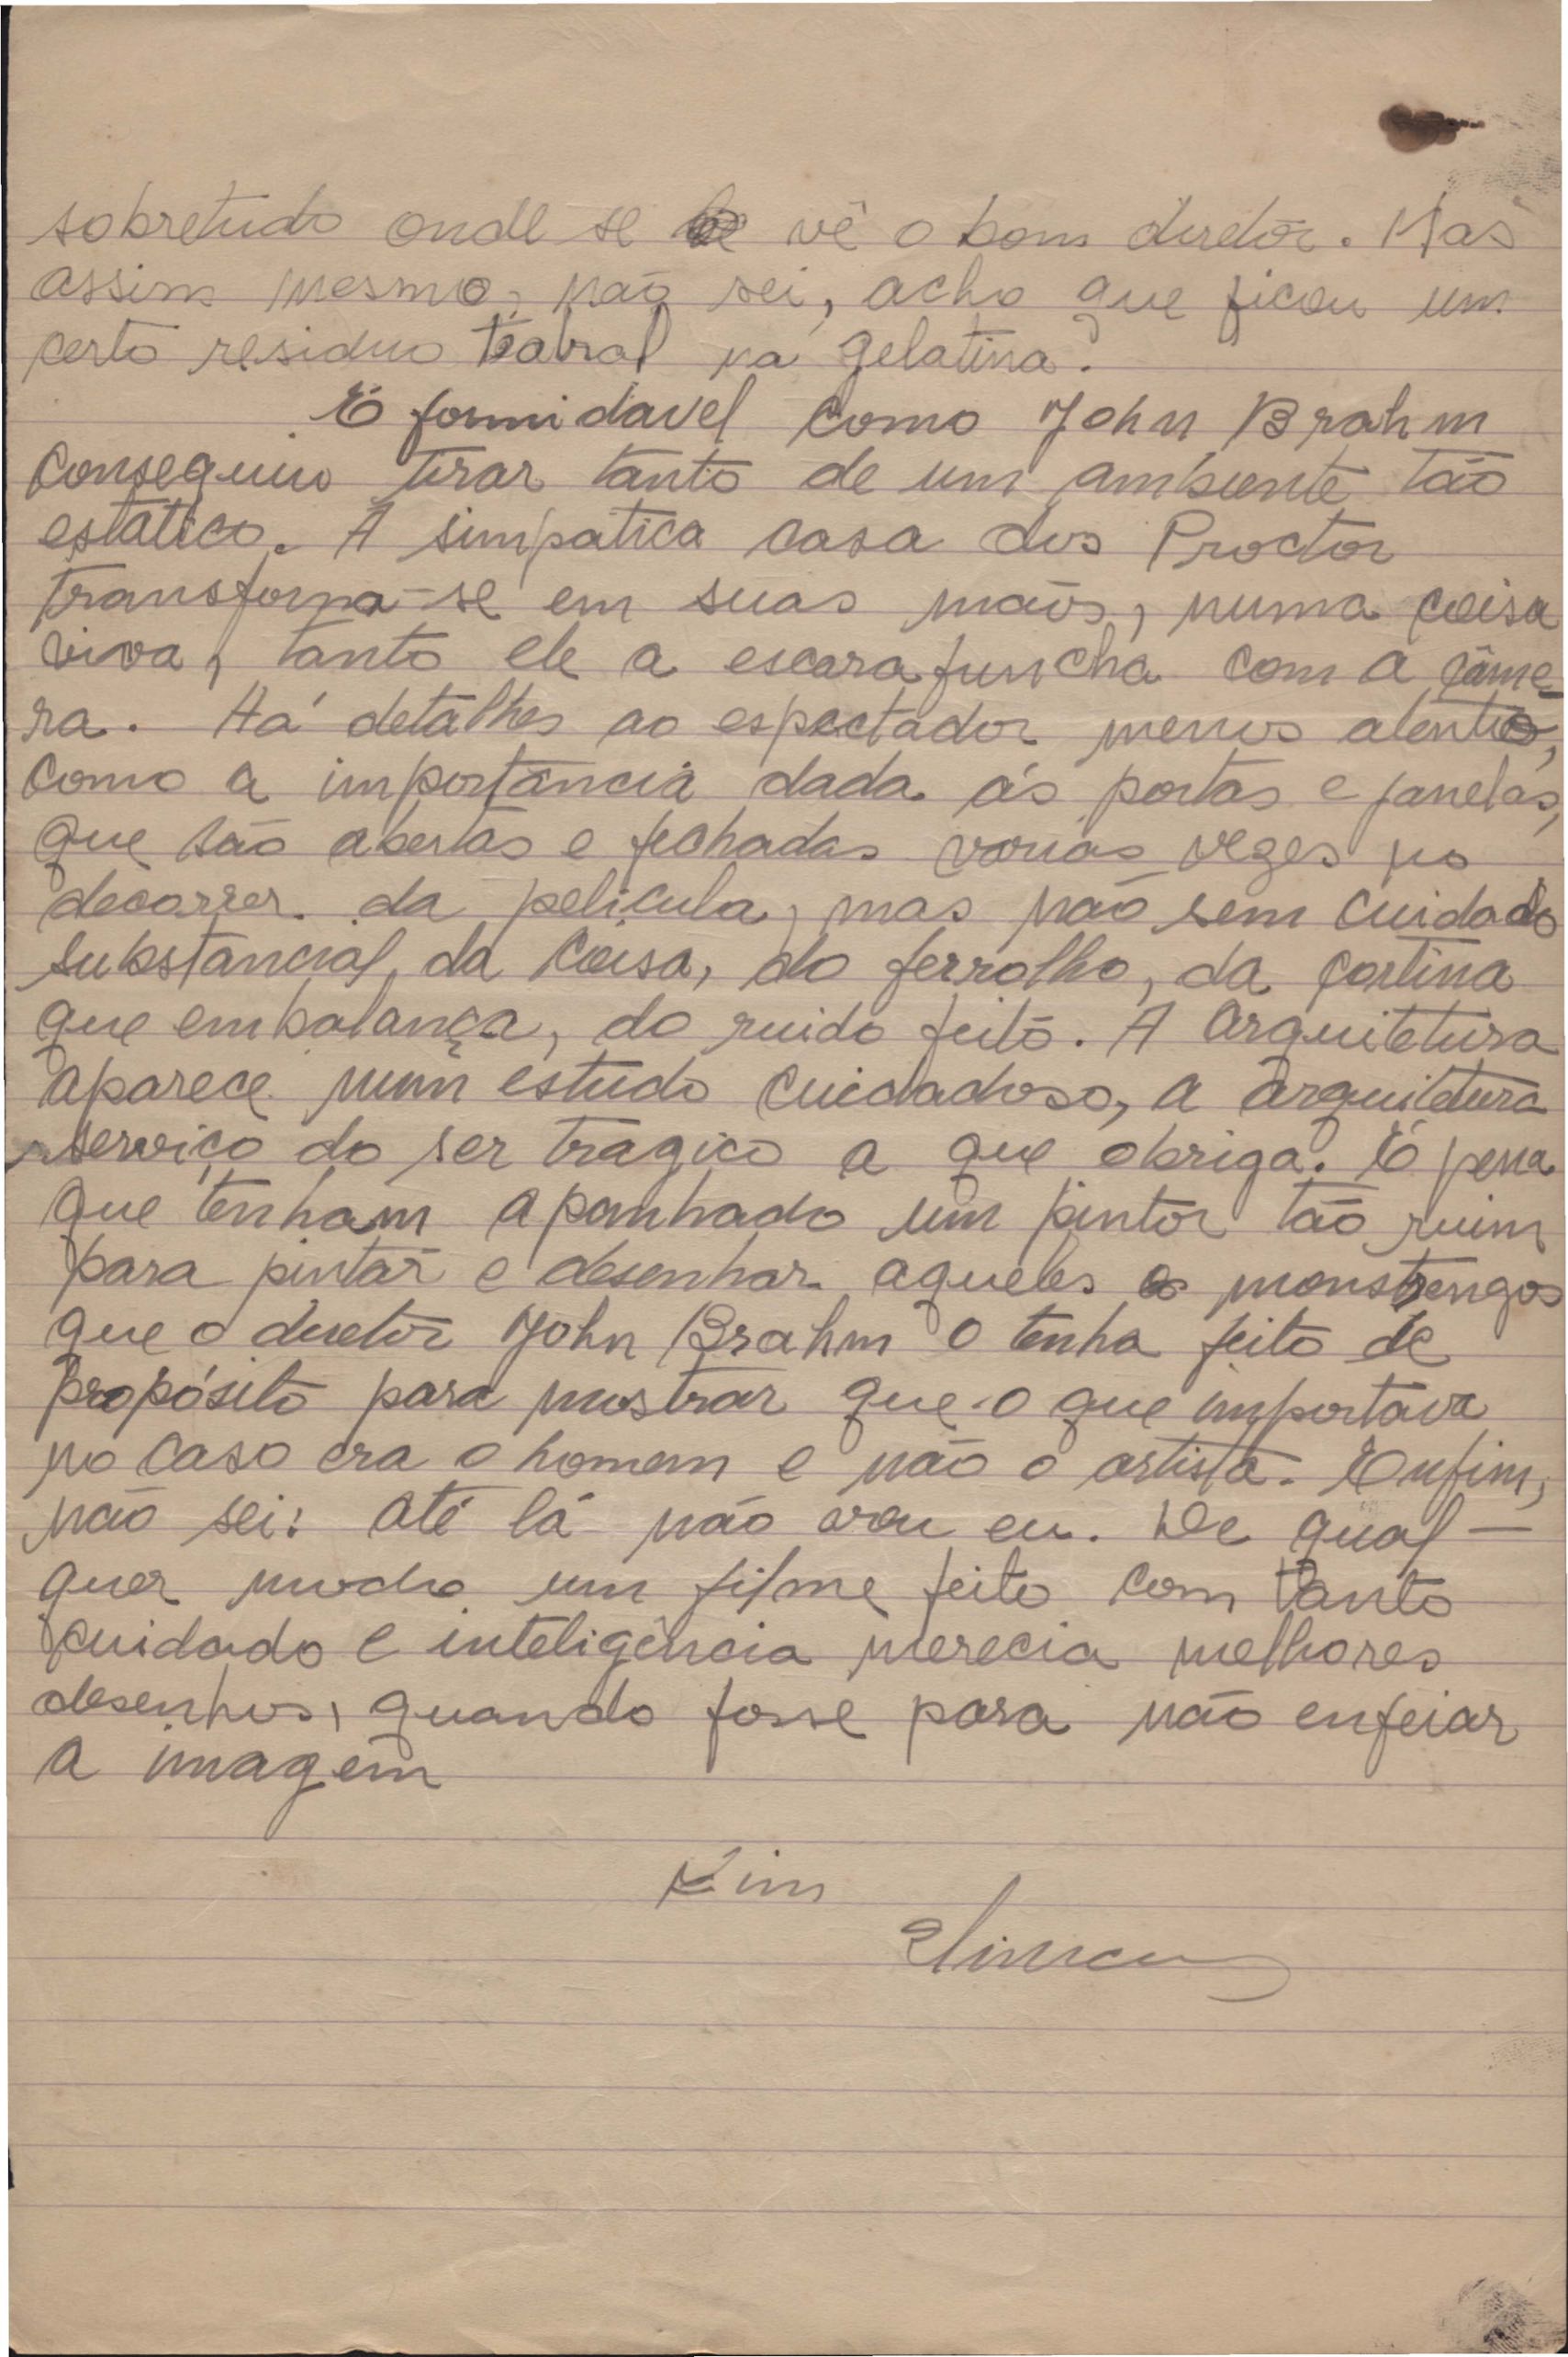 sobretudo onde se vê o bom diretor. Mas
assim mesmo, não sei, acho que ficou um
certo residuo teatral na gelatina.
É formidavel como John Brahm
conseguiu tirar tanto de um ambiente tão
estatico. A simpatica casa dos Proctor
transforma-se em suas mãos, numa coisa
viva, tanto ele a escarafuncha com a câme-
ra. Há detalhes ao espectador menos atento,
como a importância dada ás portas e janelas,
que são abertas e fechadas varias vezes no
decorrer da pelicula, mas não sem cuidado
substancial, da coisa, do ferrolho, da cortina
que embalança, do ruido feito. A arquitetura
aparece num estudo cuidadoso, a arquitetura
serviço do ser tragico a que obriga. É pena
que tenham apanhado um pintor tão ruim
para pintar e desenhar aqueles monstrengos
que o diretor John Brahm o tenha feito de
propósito para mostrar que o que importava
no caso era o homem e não o artista. Enfim,
não sei: até lá não vou eu. De qual-
quer modo um filme feito com tanto
cuidado e inteligência merecia melhores
desenhos, quando fosse para não enfeiar
a imagem
Fim